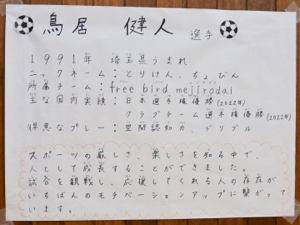 鳥居 健人 選手
1991年 埼玉県うまれ
ニックネーム：とりけん、ちょびん
所属チーム：free bird mejirodai
主な国内実績：日本選手権優勝(2022年)
クラブチーム選手権優勝(2022年)
得意なプレー：空間認知力、ドリブル
スポーツの厳しさ、楽しさを知る中で、
人として成長することができました。
試合を観戦し、応援してくれる人の存在が
いちばんのモチベーションアップに繋がって
います。